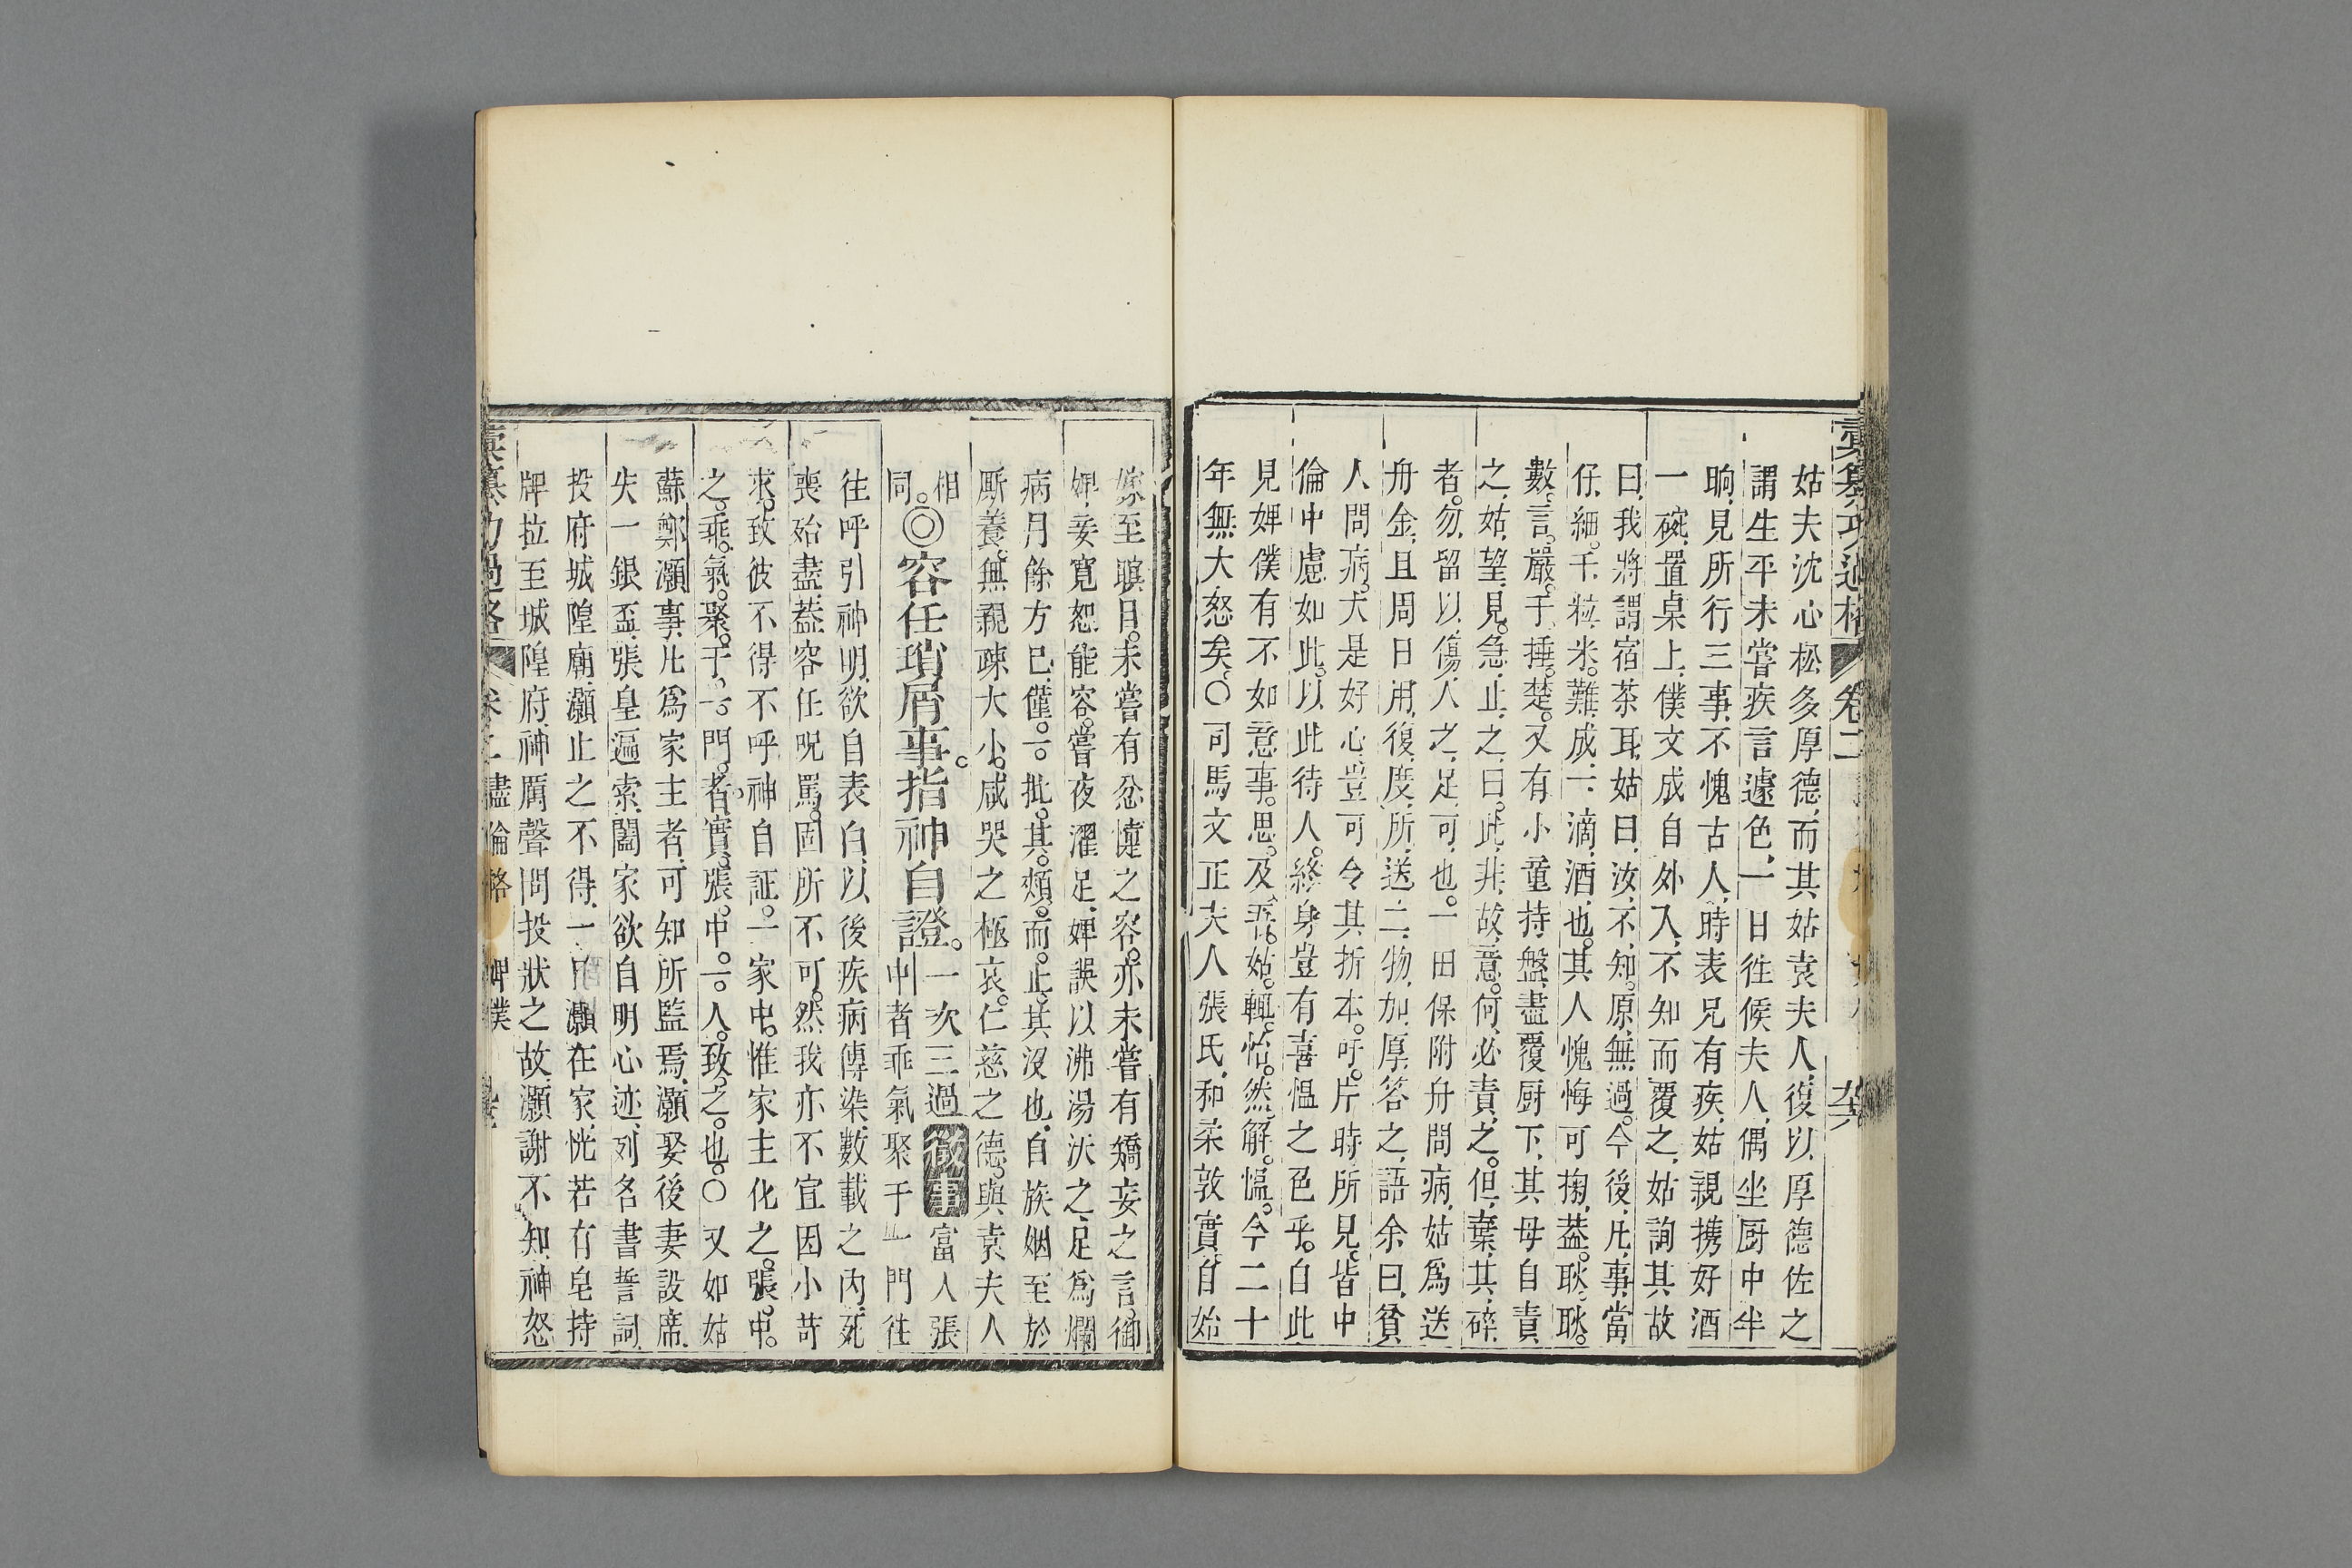 彙纂功過格 卷二
姑夫沈心松多厚德而其姑袁夫人復以厚德佐之
謂生平未嘗疾言遽色一日往候夫人偶坐厨中半
晌見所行三事不愧古人時表兄有疾姑親携好酒
一碗置桌上僕文成自外入不知而覆之姑詢其故
曰我將謂宿茶耳姑曰汝不知原無過今後凡事當
仔細千粒米難成一滴酒也其人愧悔可掬葢耿耿
數言嚴于捶楚又有小童持盤盡覆厨下其母自責
之姑望見急止之曰此非故意何必責之但棄其碎
者勿留以傷人之足可也一田保附舟問病姑爲送
舟金且周日用復度所送二物加厚答之語余曰貧
人問病大是好心豈可令其折本吁片時所見皆中
倫中慮如此以此待人終身豈有喜慍之色乎自此
見婢僕有不如意事思及吾姑輒怡然解慍今二十
年無大怒矣○司馬文正夫人張氏和柔敦實自始
嫁至瞑目未嘗有忿懥之容亦未嘗有矯妄之言御
婢妾寛恕能容嘗夜濯足婢誤以沸湯沃之足爲爛
病月餘方已僅一批其頰而止其沒也自族姻至於
厮養無親疎大小咸哭之極哀仁慈之德與袁夫人
相同◎容任瑣屑事指神自證一次三過徵事富人張
中者乖氣聚于一門往
往呼引神明欲自表白以後疾病傳染數載之内死
喪殆盡葢容任呪罵固所不可然我亦不宜因小苛
求致彼不得不呼神自証一家中惟家主化之張中
之乖氣聚于一門者實張中一人致之也○又如姑
蘇鄭灝事凡爲家主者可知所監焉灝娶後妻設席
失一銀盃張皇遍索闔家欲自明心迹列名書誓詞
投府城隍廟灝止之不得一日灝在家恍若有皂持
牌拉至城隍府神厲聲問投狀之故灝謝不知神怒
彙纂功過格 卷二盡倫格 婢僕